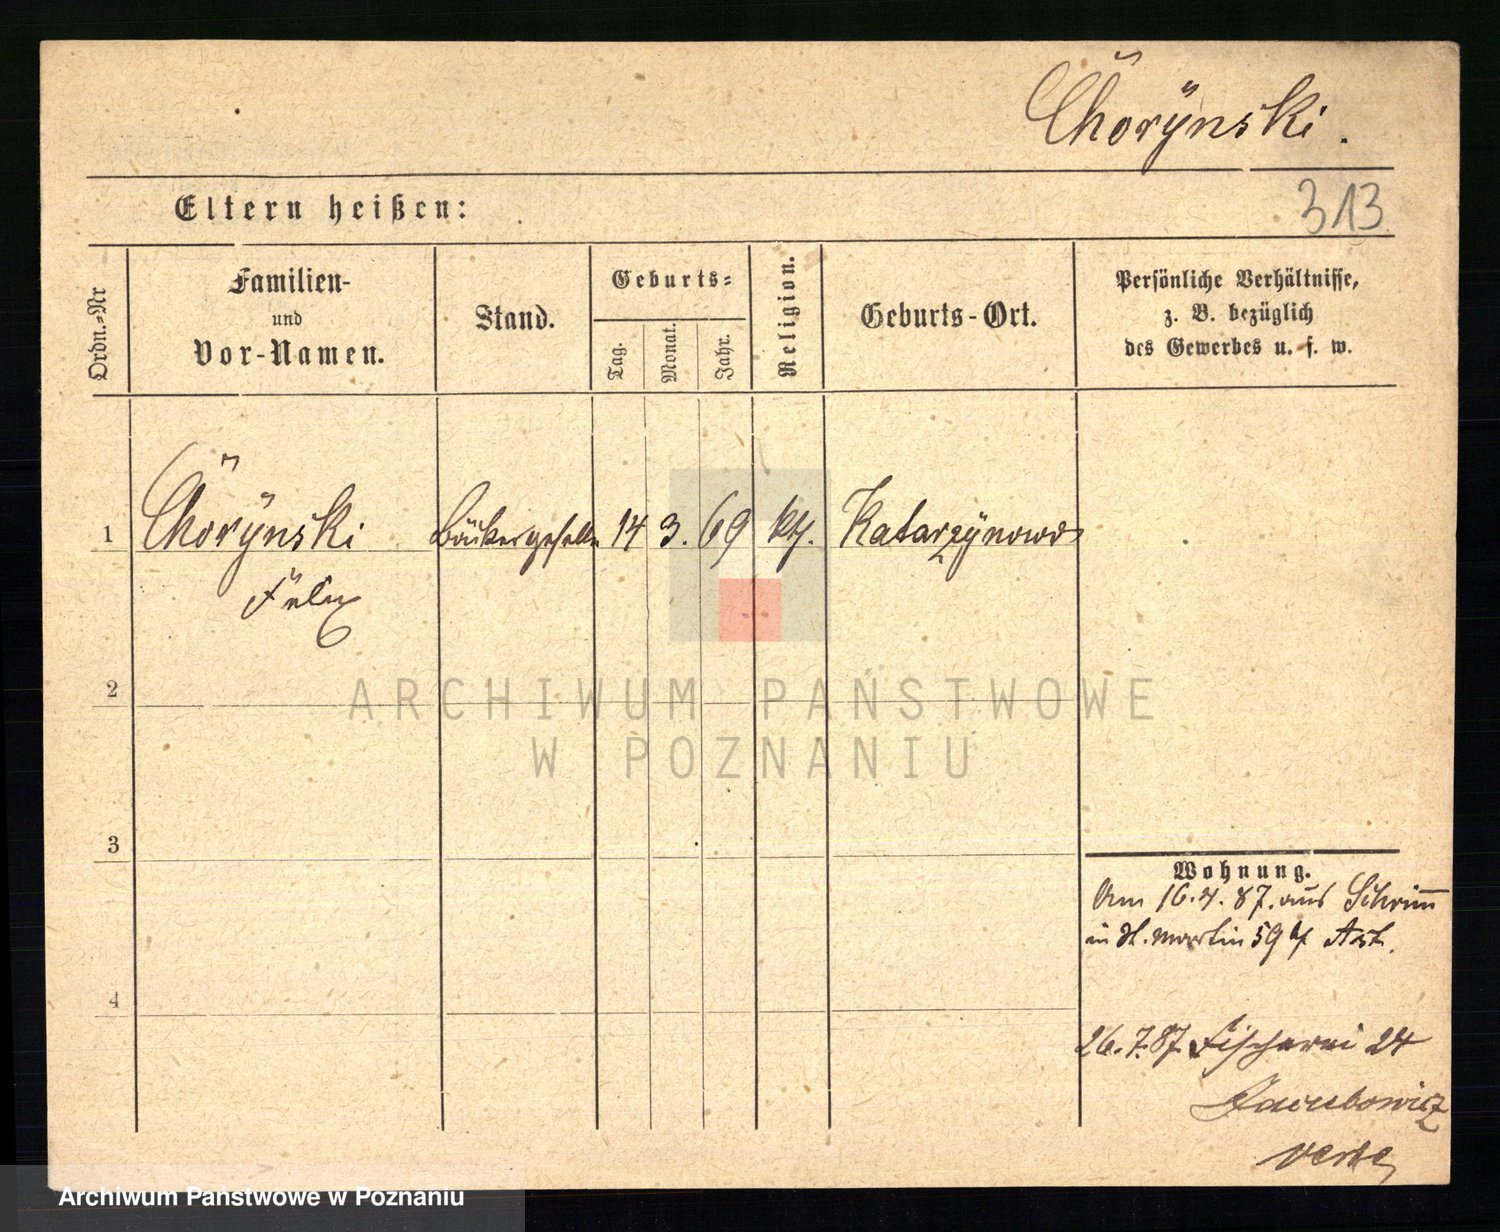 Chorÿnski.
Eltern heißen:
313
Ordn.=Nr
Familien-
und
Vor-Namen.
Stand.
Geburts=
Tag.
Monat.
Jahr.
Religion.
Geburts-Ort.
Persönliche Verhältnisse,
z. B. bezüglich
des Gewerbes u. s. w.
1 Chorÿnski Bäckergeselle 14 3. 69 kth. Katarzÿnowo
Felix
2
ARCHIWUM PAŃSTWOWE
W POZNANIU
3
Wohnung.
Am 16.4.87. aus Schrim̅
in St. Martin 59 b/
4
26.7.87 Fischerei 24
Jacubowicz
verte
Archiwum Państwowe w Poznaniu